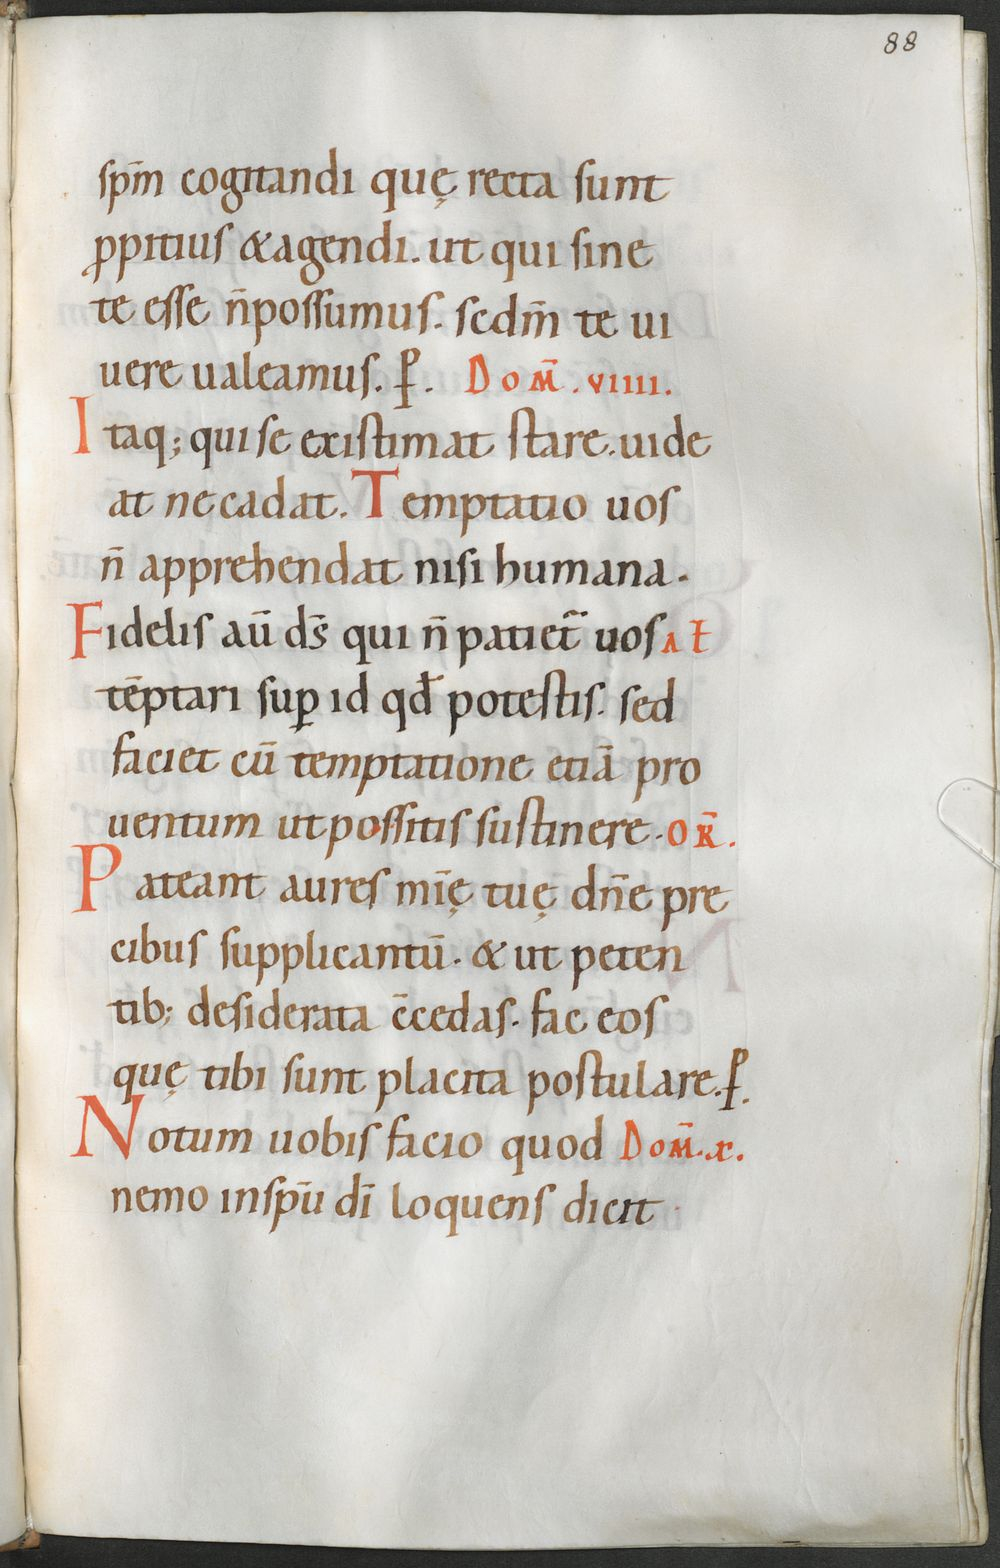 88
sp̄m cogitandi quę recta sunt
ꝓpitius & agendi. ut qui sine
te esse n̄ possumus. sedm̄ te ui
uere ualeamus. ꝑ. Dom̄. viiii.
Itaq; qui se existimat stare. uide
at ne cadat. Temptatio uos
n̄ apprehendat nisi humana.
Fidelis aū ds̄ qui n̄ patiet̄ uos at
tēptari suꝑ id qđ potestis. sed
faciet cū temptatione etiā pro
uentum ut possitis sustinere. or̄.
Pateant aures mīę tuę dn̄e pre
cibus supplicantū. & ut peten
tib; desiderata c̄cedas. fac eos
quę tibi sunt placita postulare. ꝑ.
Notum uobis facio quod Dom̄. x.
nemo in sp̄u dī loquens dicit